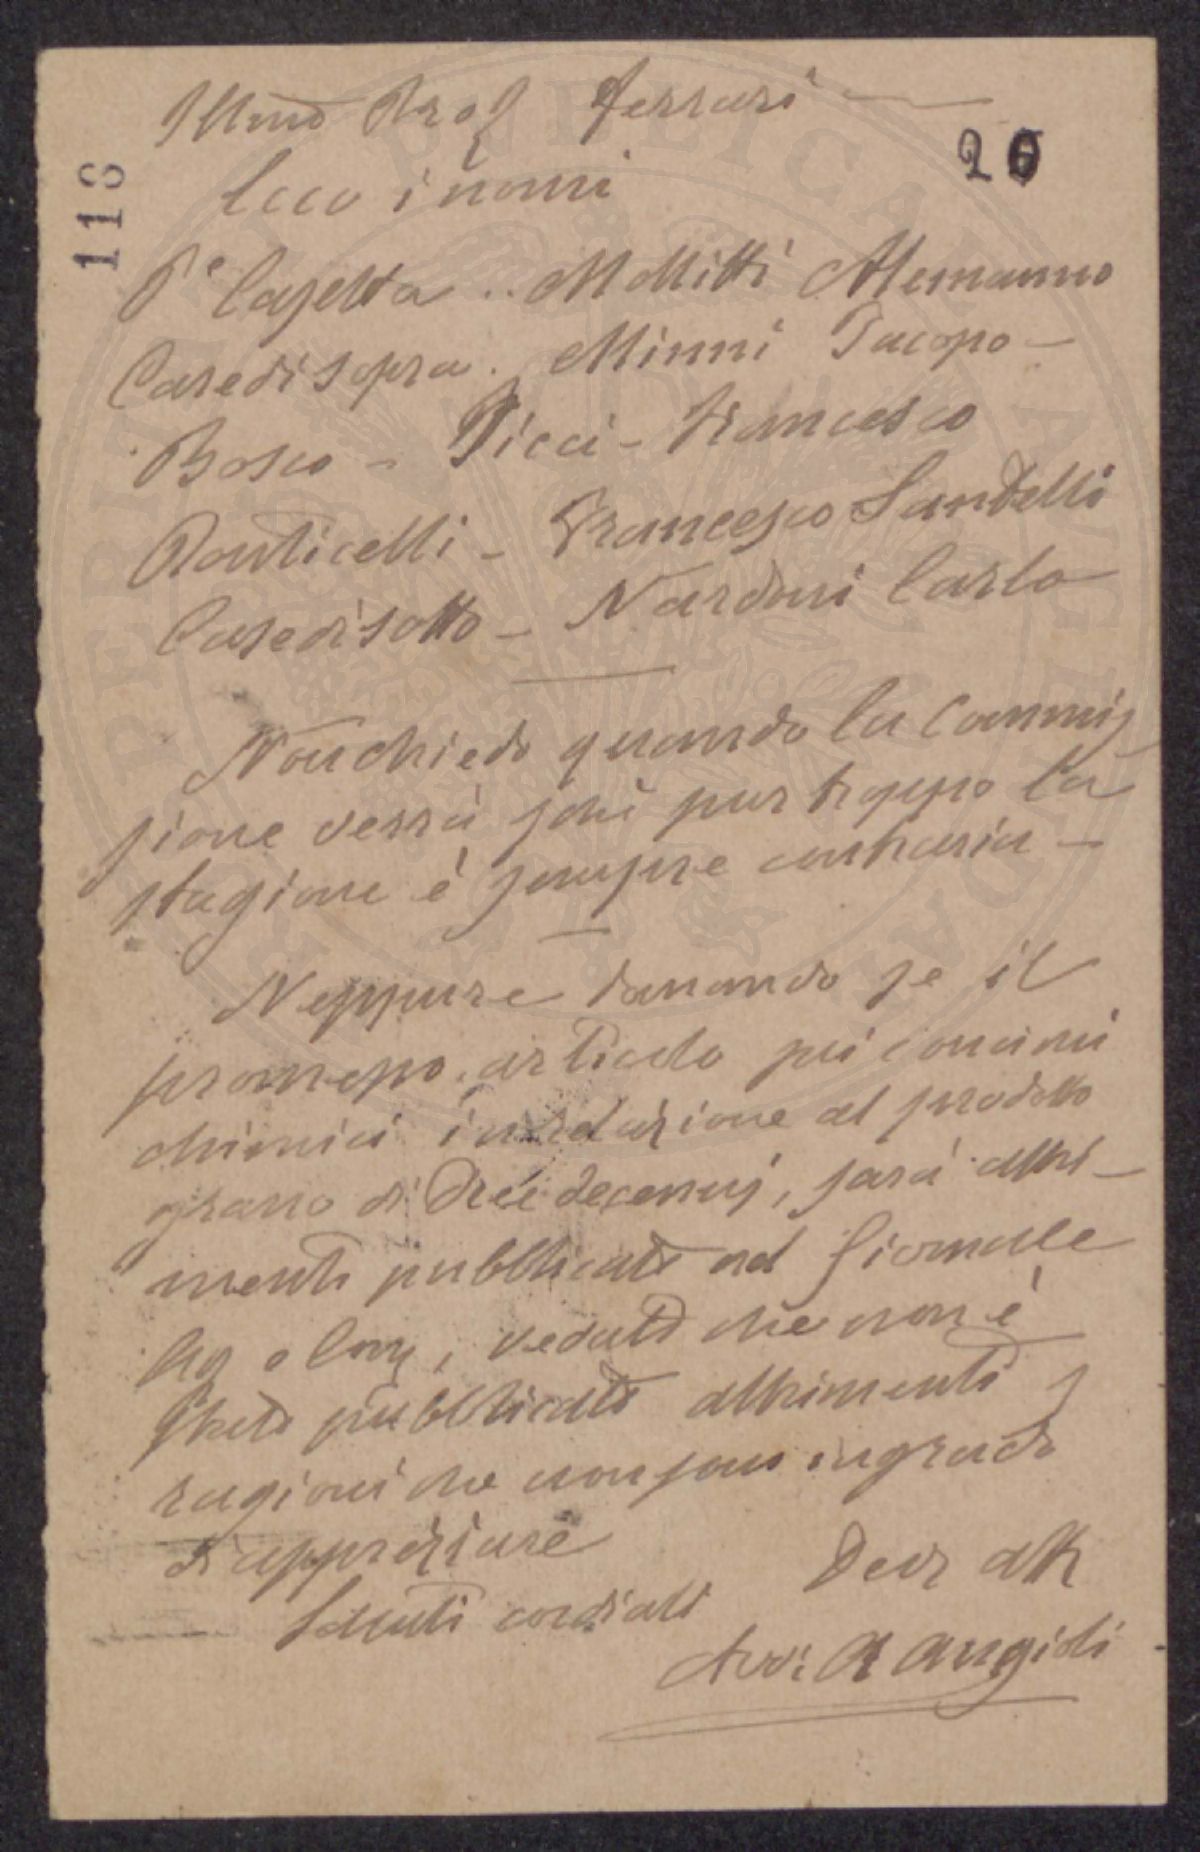 Illmo Prof Ferrari
26
118
Ecco i nomi
Pe Casetta .. Mollitti Alemanno
Casedisopra. Minni Jacopo -
Bosco - Ticci - Francesco
Ponticelli - Francesco Santelli
Casedisotto - Nardoni Carlo
Non chiedo quando la Commis
sione verrà perché pur troppo la
stagione è sempre contraria -
Neppure domando se il
promesso articolo sui concimi
chimici in relazione al prodotto
grano di dieci decennj, sarà altri-
menti pubblicato nel Giornale
Ag e Com, veduto che non è
stato pubblicato altrimenti
ragioni che non sono in grado
di apprezziare
Saluti cordiali
Dev att
Avv. A Angioli